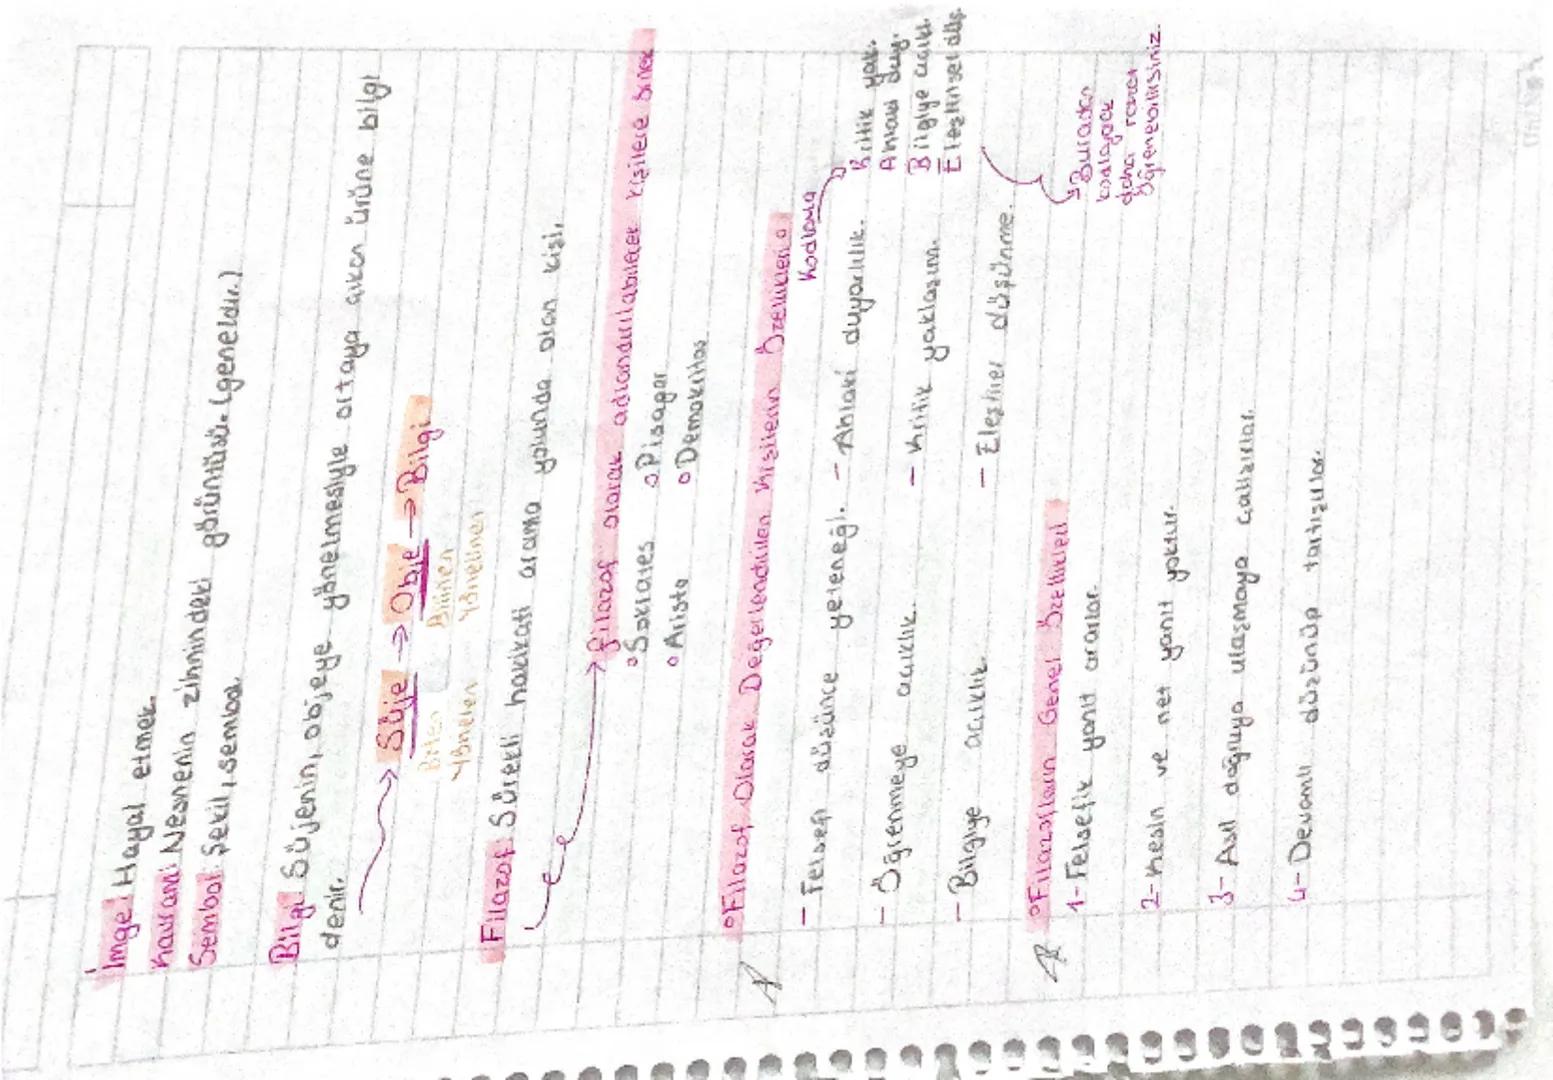 İmge: Hayal etmek.
Kavram: Nesnenin zihnindeki görüntüsü. (geneldir.)
Sembol: Şekil, sembol.
Bilgi: Süjenin, objeye yönelmesiyle ortaya çıkan ürüne bilgi
denir.
Süje → Obje → Bilgi
Bilen Bilinen
Yönelen Yönelinen
Filazof: Sürekli hakikati arama yolunda olan kişi.
Filazof olarak adlandırılabilecek kişilere örnek
Sokrates
Pisagor
Aristo
Demokritos
Filazof Olarak Değerlendirilen Kişilerin Özellikleri
Kodlama
- Felsefi düşünce yeteneği.
- Ahlaki duyarlılık.
- Öğrenmeye açıklık.
- Kritik yaklaşım.
- Bilgiye açıklık
- Eleştirel düşünme.
Kritik yak.
Ahlaki duy.
Bilgiye açıkl.
Eleştirisel düş.
Buradan
kodlayarak
daha rahat
öğrenebilirsiniz.
Filazofların Genel Özellikleri
1- Felsefik yanıt ararlar.
2- Kesin ve net yanıt yoktur.
3- Asıl doğruya ulaşmaya çalışırlar.
4- Devamlı düşünüp tartışırlar.